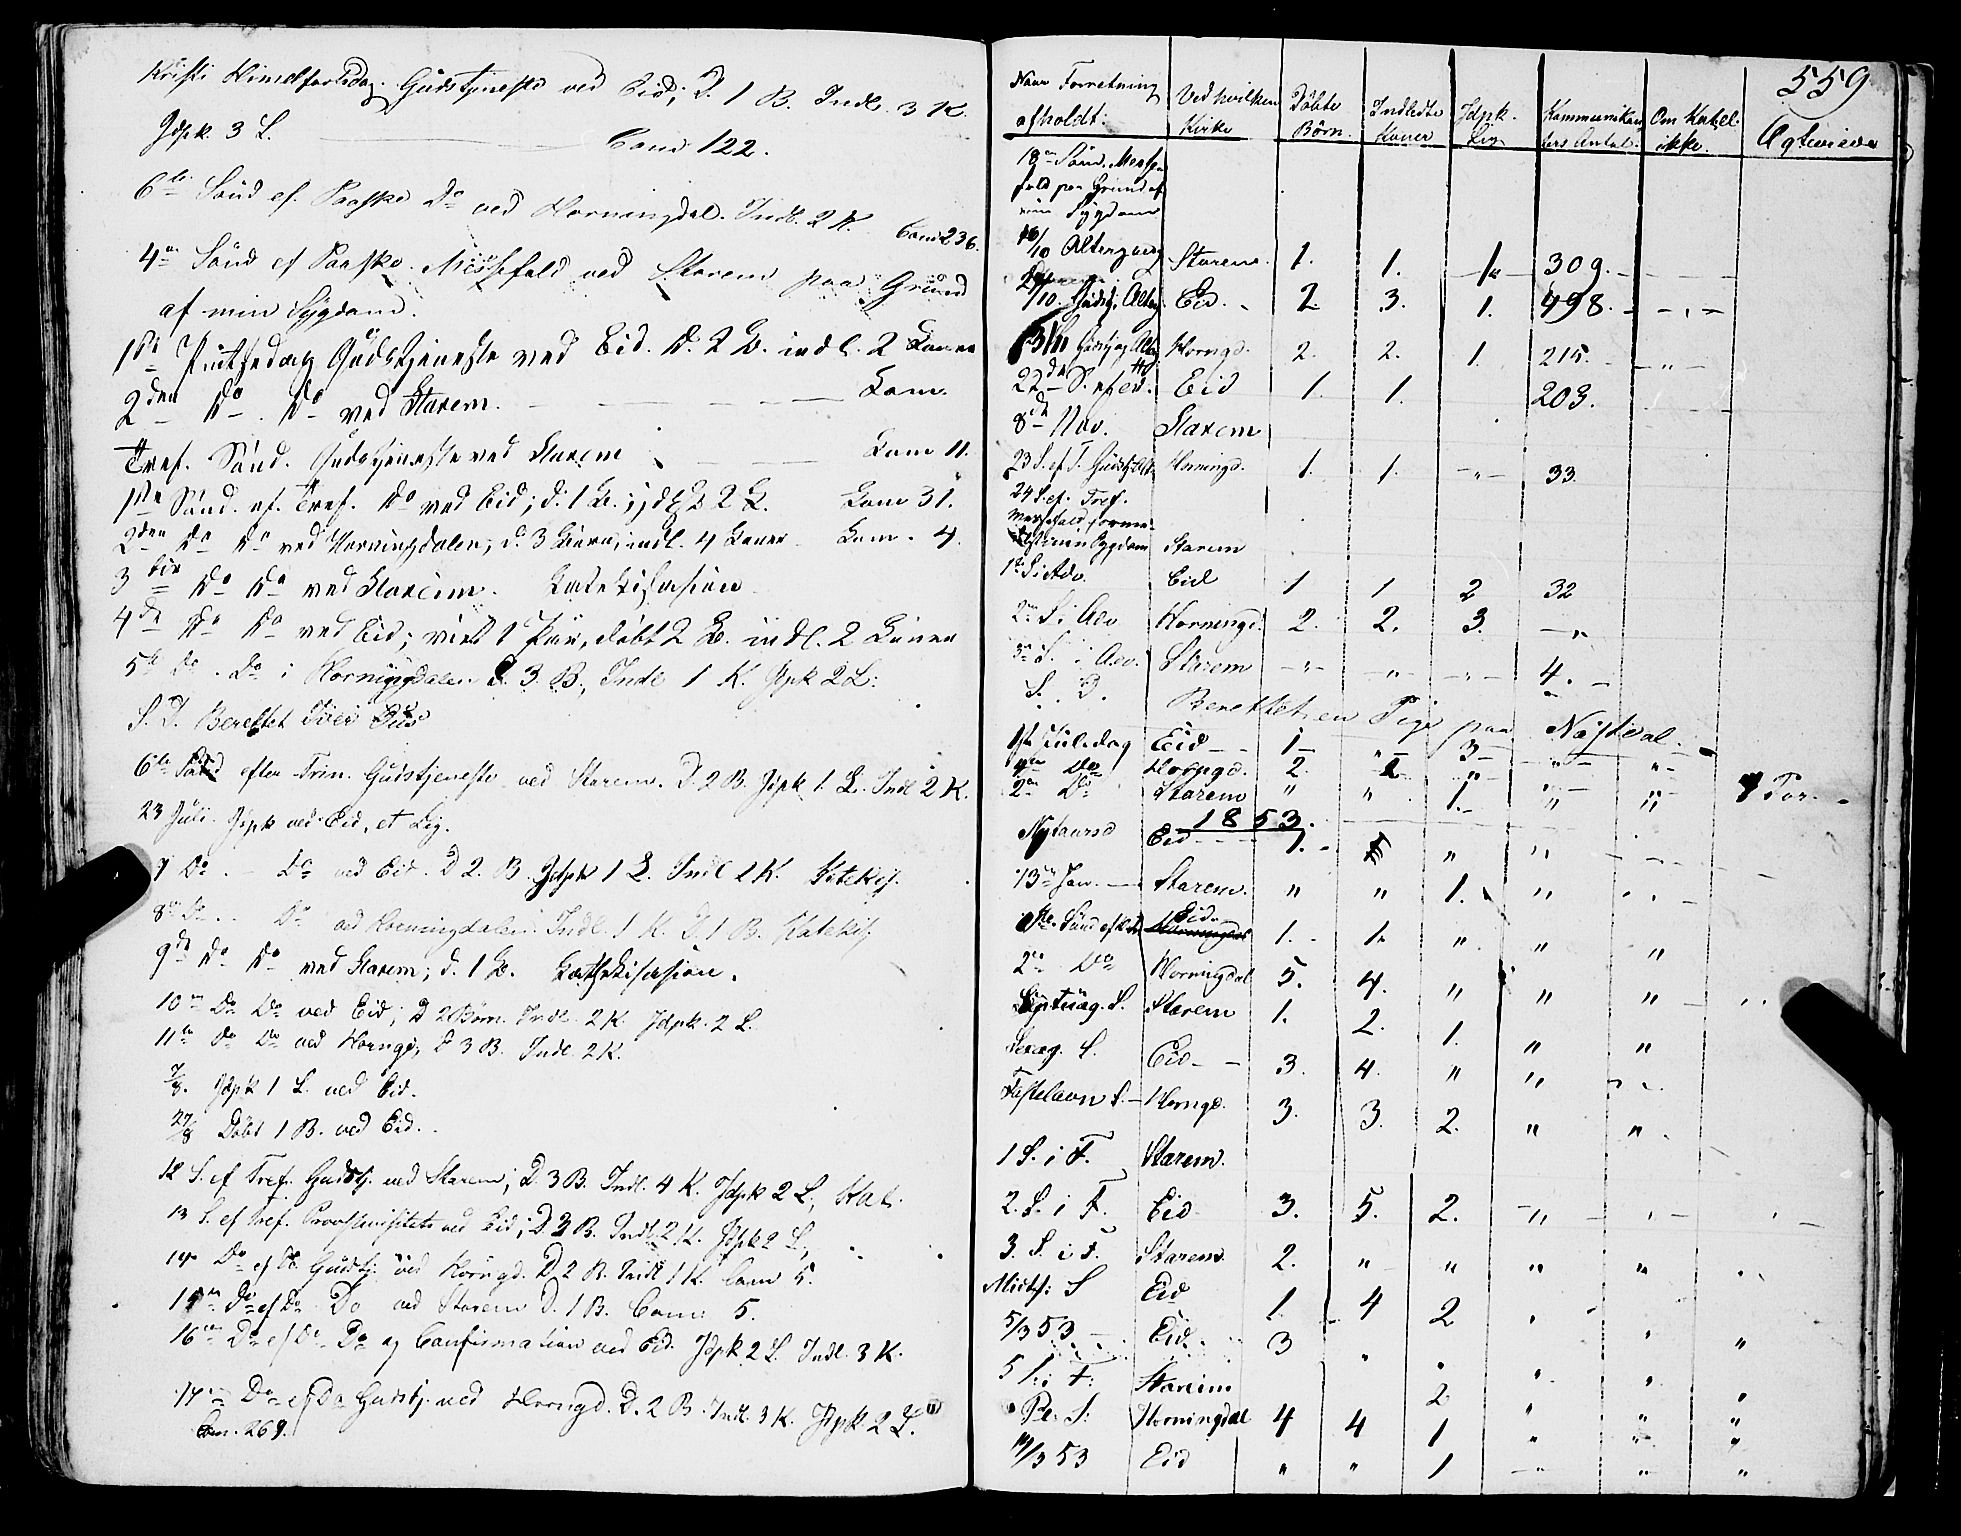 Kristi Himelfartsdag. Gudstjeneste ved Eid; D. 1 B. Indl. 3 K.
Jdpk 3 L. Com 122.
6te Sönd ef. Paaske Do ved Horningdal. Indl. 2 K. Com 236.
4de Sönd ef Paaske. Messefald ved Starem paa Grund
af min Sygdom.
1ste Pintsedag Gudstjeneste ved Eid. D. 2 B. indl. 2 Koner
2den Do. Do ved Starem. Kom.
Tref. Sönd. Gudstjeneste ved Starem Kom 11.
1ste Sönd. ef. Tref. Do ved Eid; d. 1 B.; jdpk 2 L. Kom 31.
2den Do Do ved Horningdalen; d. 3 Börn; indl. 4 Koner Kom. 4.
3die Do Do ved Starem. Katekisasion
4de Do Do ved Eid; viet 1 Par, döbt 2 B. indl. 2 Koner
5te Do. Do i Horningdalen. D. 3 B., Indl 1 K. Jdpk 2 L.
S. D. Berettet Iver
6te Sönd efter Trin. Gudstjeneste ved Starem. D 2 B. Jdpk 1 L. Indl 2 K.
23 Juli. Jdpk ved Eid, et Lig.
7 Do. Do ved Eid. D 2. B. Jdpk 1 L. Indl 2 K. Katekis.
8de Do. Do ved Horningdalen. Indl. 1 K. D. 1 B. Katekis.
9de Do Do ved Starem; d. 1 B. Kathekisasion.
10de Do Do ved Eid; D 2 Börn. Indl. 2 K. Jdpk. 2 L.
11te Do Do ved Horngd; D 3 B. Indl. 2 K.
7/8. Jdpk 1 L. ved Eid.
27/8 Döbt 1 B. ved Eid.
12 S. ef Tref. Gudstj. ved Starem; D. 3 B. Indl. 4 K. Jdpk 2 L; Kat.
13 S. ef Tref. Provstevisitats ved Eid; D 3 B. Indl 2 K. Jdpk 2 L;
14de Do ef Do Gudstj. ved Horngd. D. 2 B. Indl 1 K. Com 5.
15de Do ef Do Do ved Starem D. 1 B. Com: 5.
16de Do ef Do Do og Confirmation ved Eid. Jdpk 2 L. Indl. 3 K.
17de Do ef Do Gudstj. ved Horngd. D. 2 B. Indl. 3 K. Jdpk 2 L.
Com. 269.
559
Naar Forretning afholdt: Ved hvilken Kirke Döbte Börn. Indledte Koner Jdpk. Lig Kommunikanters Antal. Om Katek. ikke. Ægteviede
18de Sönd. Messe-
fald paa Grund af
min Sygdom
10/10 Alterg. Starem. 1. 1. 1 309.
/10. Gudstj. Alterg. Eid. 2 3. 1. 498.
31/10 Gudstj og Alterg Horngd. 2. 2. 1. 215.
22de S. ef Eid 1. 1. 203.
8de Nov. Starem
23 S. ef T. Gudstj. Horningd. 1. 1. " 33
24 S. ef. Tref.
Messefald formedelst
min Sygdom Starem
1ste S i Adv. Eid 1 1 2 32
2den S. i Adv Horningd. 2. 2. 3. "
3de S. i Adv. Starem " " " 4.
S. D. Berettet en Pige paa Nöstdal.
1ste Juledag Eid 1 " 3 " "
Do Horngd. 2. 2 " " " 1 Par.
2den Do Starem " " 1. " "
1853.
Nytaarsd Eid 1. " "
13de Jan. Starem. " " 1. "
1ste Sönd ef Eid. 1. 1. " " "
2den Do Horningdal 5. 4. " " "
Septuag. S. Starem 1. 2. 1. " "
Sexag. S. Eid 3. 4. " "
Fastelavn S. Horngd. 3. 3. 2. " "
1 S. i F. Starem.
2. S. i F. Eid 3. 5. 2. "
3. S. i F. Starem 2. " " " "
Midtf: S Eid 1. 4 2
5/3 53 Eid. 3 "
5 S. i F. Starem 2 "
Pl. S: Horningdal 4 4 1 " " "
/3 53 Eid " " 1 " " "